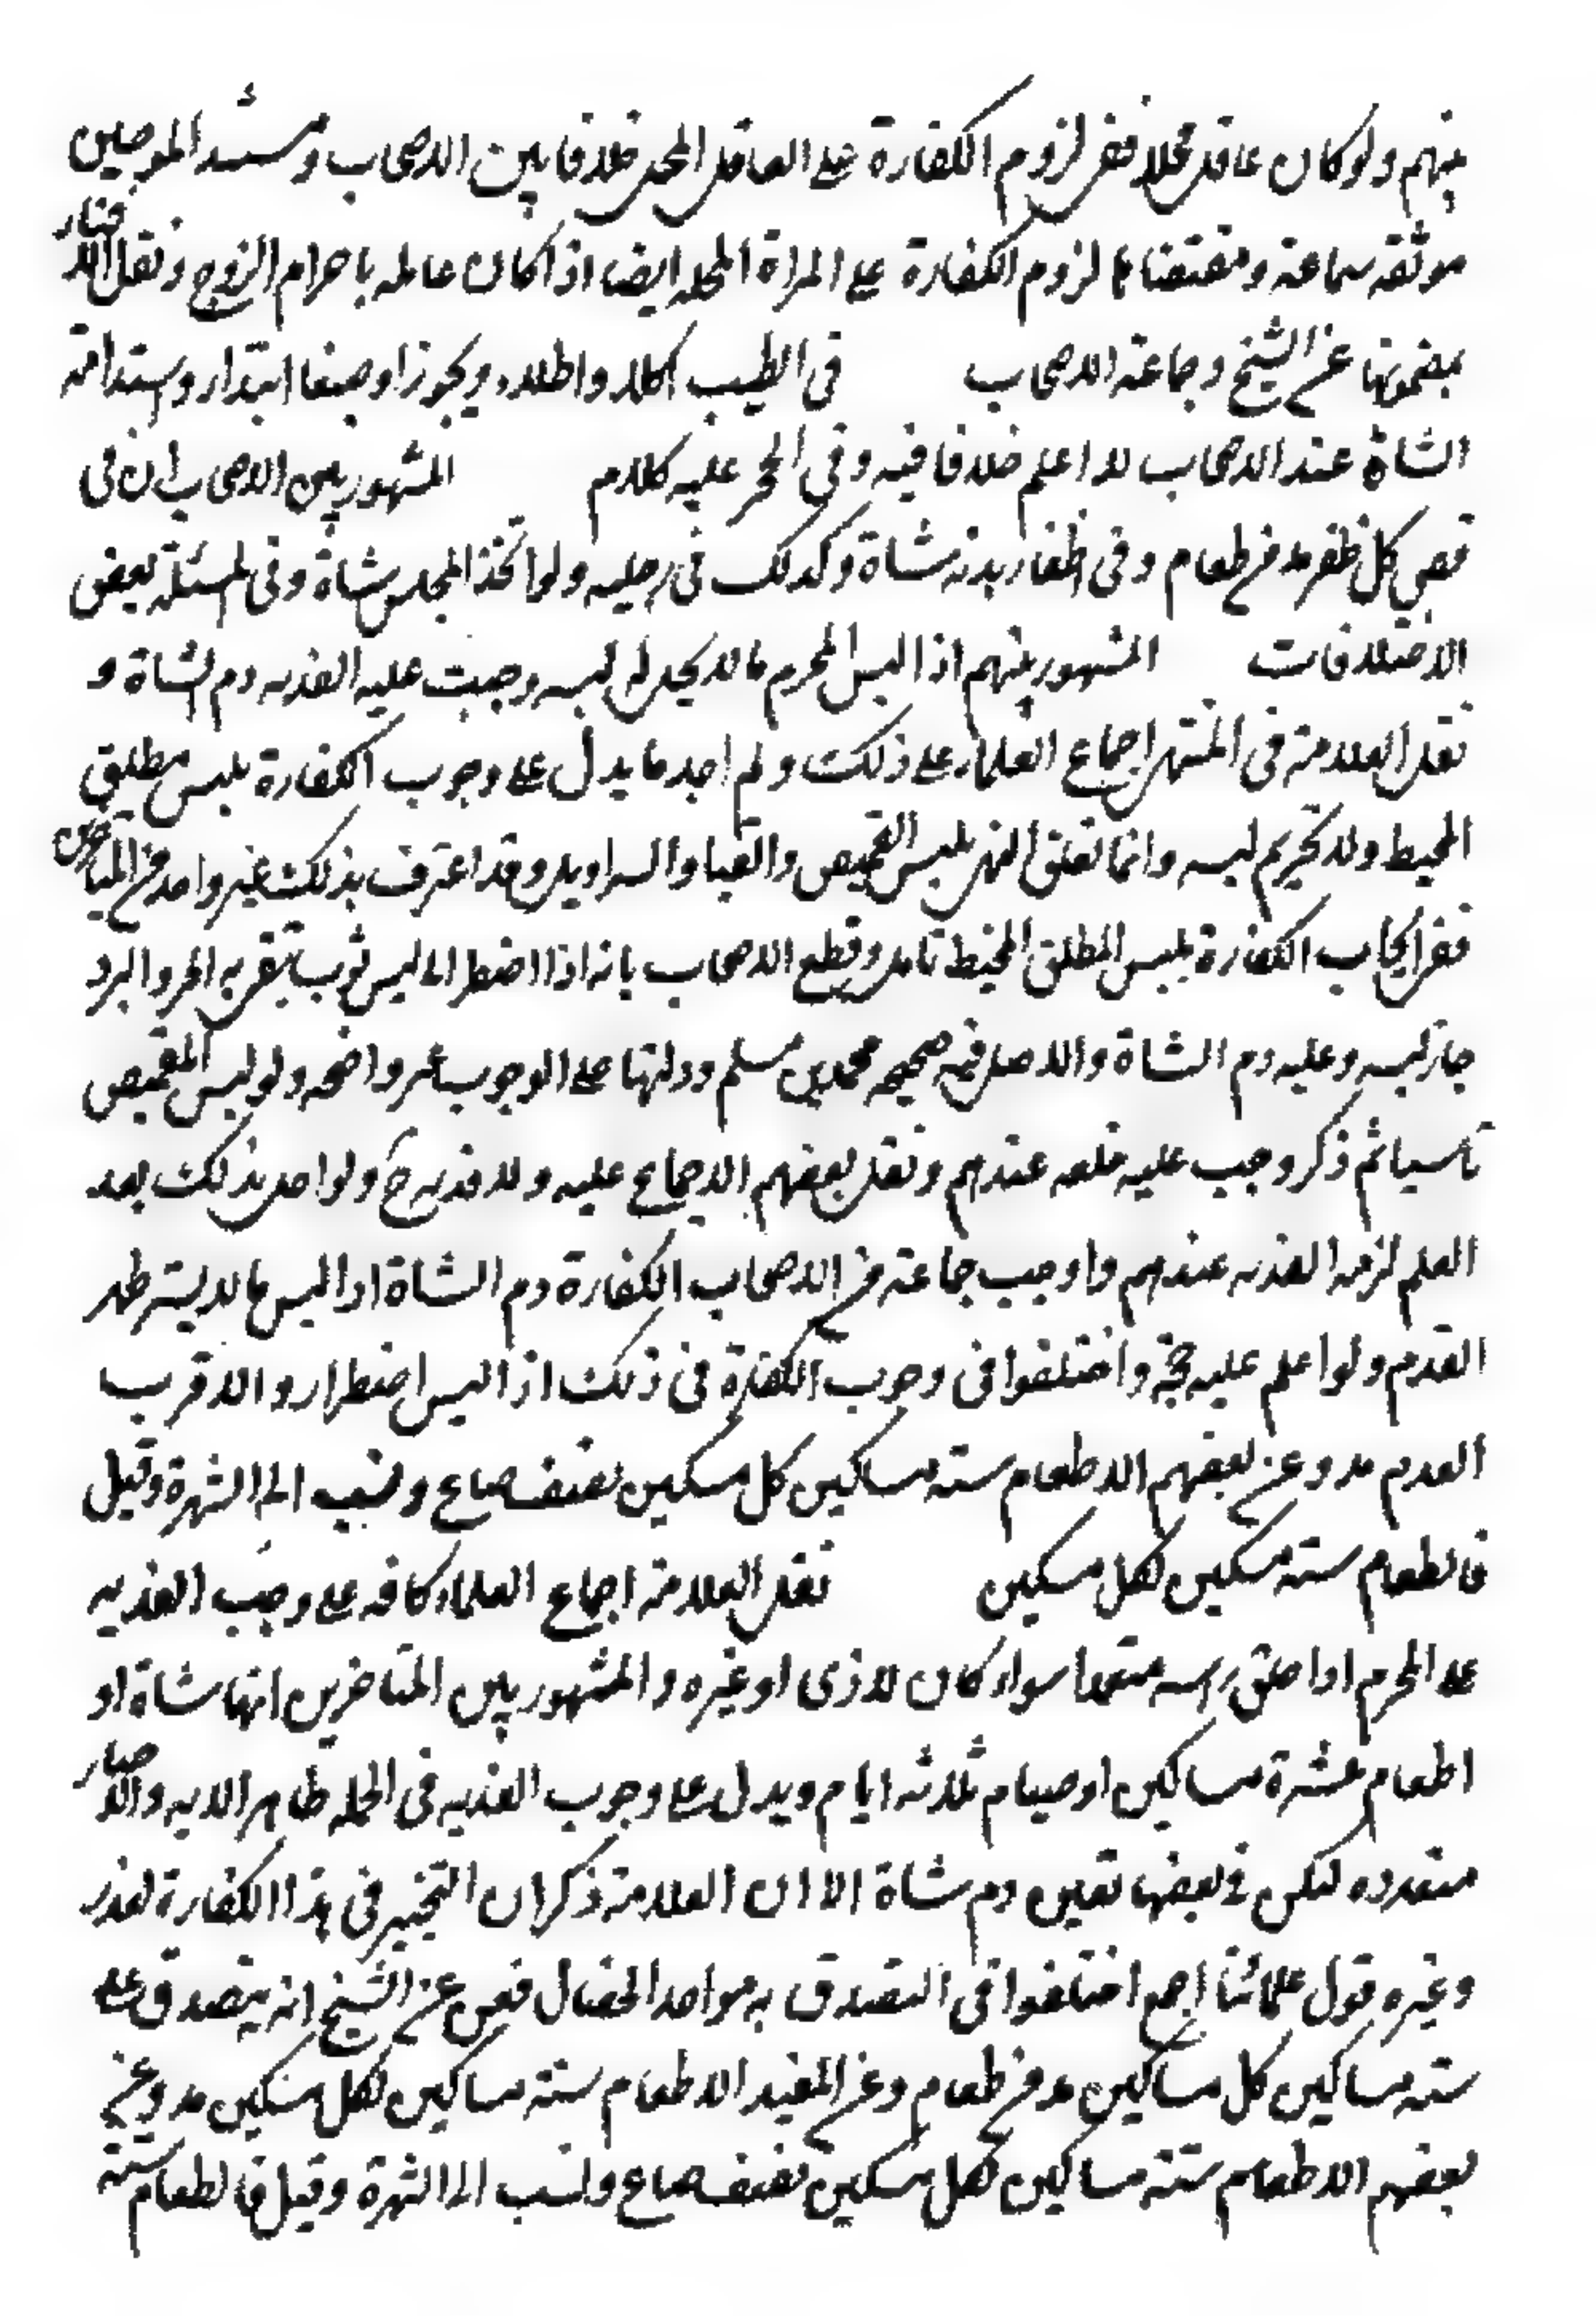 بينهم ولو كان عاقد محلا ففى لزوم الكفارة على العاقد المحل خلافا بين الاصحاب ومستند الموجبين
موثقه سماعة ومقتضاها لزوم الكفارة على المراة المحله ايضا اذا كان عالمه باحرام الزوج ونقل الافتار
بمضمونها عن الشيخ وجماعة الاصحاب فى الطيب اكلا واطلاء وبخورا وصبغا ابتداء واستدامة
الشاة عند الاصحاب لا اعلم خلافا فيه وفى الحجر عليه كلام المشهور بين الاصحاب ان فى
قص كل ظفر مد من طعام وفى اظفار يديه شاة وكذلك فى رجليه ولو اتخذ المجلس شاة وفى المسئلة بعض
الاختلافات المشهور بينهم اذا لبس المحرم ما لا يحل له لبسه وجبت عليه الفديه دم الشاة و
نقل العلامة فى المنتهى اجماع العلماء على ذلك ولم اجد ما يدل على وجوب الكفارة بلبس مطلق
المخيط ولا تحريم لبسه وانما تعلق النهى بلبس القميص والقبا والسراويل وقد اعترف بذلك غير واحد من المتاخرين
ففى ايجاب الكفارة بلبس المطلق المخيط تامل وقطع الاصحاب بانه اذا اضطر الى لبس ثوب يتقى به الحر والبرد
جاز لبسه وعليه دم الشاة والاصل فيه صحيحه محمد بن مسلم ودلتها على الوجوب غير واضحه ولو لبس القميص
ناسيا ثم ذكر وجب عليه خلعه عندهم ونقل بعضهم الاجماع عليه ولا فديه ح ولو اخل بذلك بعد
العلم لزمه الفديه عندهم واوجب جماعة من الاصحاب الكفارة دم الشاة اذا لبس ما لا يستر ظهر
القدم ولو اعلم عليه حجة واختلفوا فى وجوب الكفارة فى ذلك اذا لبس اضطرار والاقرب
العدم مد وعن بعضهم الاطعام سته مساكين كل مسكين نصف صاع ونسب الى الشهرة وقيل
فالطعام سته مسكين لكل مسكين نقل العلامة اجماع العلماء كافه على وجب الفديه
على المحرم اذا حلق راسه متعمدا سواء كان لاذى او غيره والمشهور بين المتاخرين انها شاة او
اطعام عشرة مساكين او صيام ثلاثه ايام ويدل على وجوب الفديه فى الجمله ظاهر الايه والاخبار
متعدده لكن فى بعضها تعين دم شاة الا ان العلامة ذكر ان التخيير فى هذا الكفارة لعذر
وغيره قول علمائنا اجمع اختلفوا فى التصدق به مواحد الخصال فعن عن الشيخ انه يتصدق على
سته مساكين كل مساكين مد من طعام وعن المفيد الاطعام سته مساكين لكل مسكين مد وعن
بعضهم الاطعام سته مساكين لكل مسكين نصف صاع ونسب الى الشهرة وقيل فالطعام سته